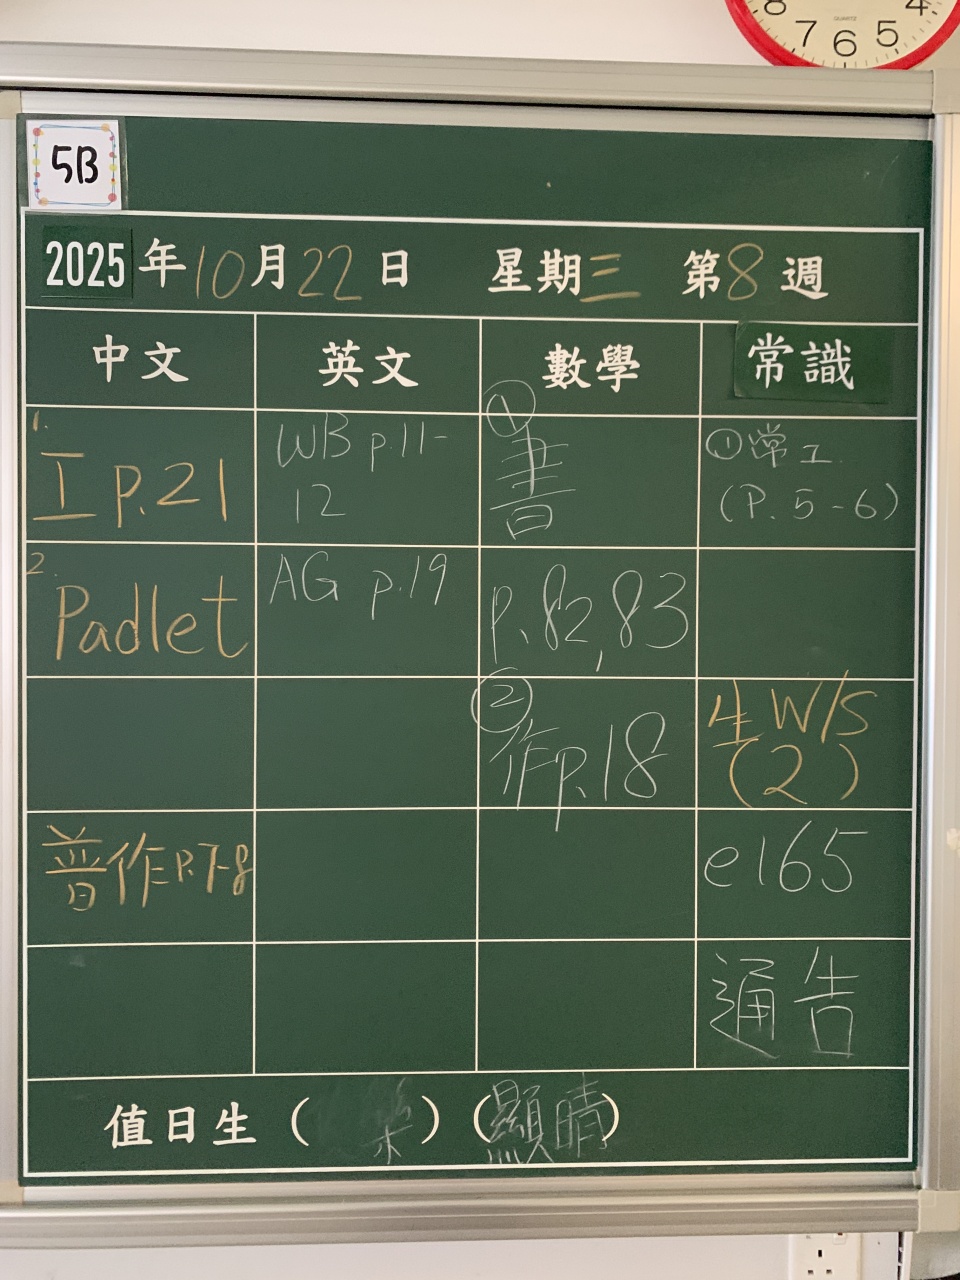 8 7 6 5 4
QUARTZ
5B
2025年10月22日 星期三 第8週
中文 英文 數學 常識
1.
工 p.21
WB p.11-
12
①
書
①常工
(P.5-6)
2.
Padlet
AG p.19
p.82,83
②
作p.18
生 W/S
(2)
普作P.7-8
e165
通告
值日生( )(顯晴)